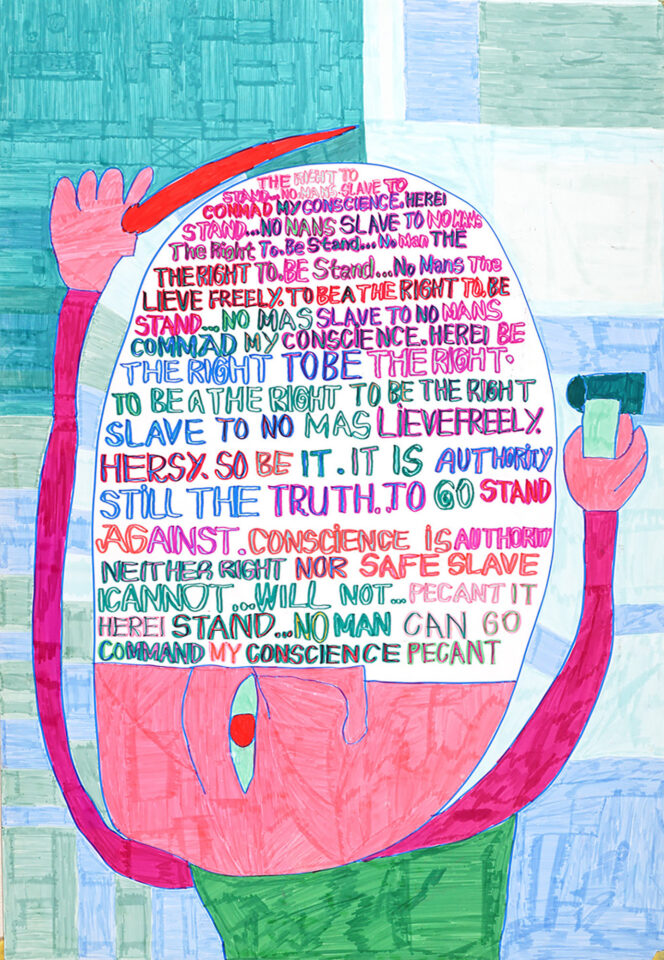 THE RIGHT TO
STAND...NO.MANS.SLAVE TO
CONMAD MY CONSCIENCE.HEREI
STAND...NO NANS SLAVE TO NO MANS
The Right To.Be Stand... No Man THE
THE RIGHT TO.BE Stand...No Mans The
LIEVE FREELY.TO BE A THE RIGHT TO.BE
STAND...NO MAS SLAVE TO NO MANS
COMMAD MY CONSCIENCE.HEREI BE
THE RIGHT TOBE THE RIGHT.
TO BE A THE RIGHT TO BE THE RIGHT
SLAVE TO NO MAS LIEVEFREELY.
HERSY.SO BE IT.IT IS AUTHORITY
STILL THE TRUTH.TO GO STAND
AGAINST.CONSCIENCE IS AUTHORITY
NEITHER RIGHT NOR SAFE SLAVE
ICANNOT...WILL NOT...PECANT IT
HEREI STAND...NO MAN CAN GO
COMMAND MY CONSCIENCE PECANT